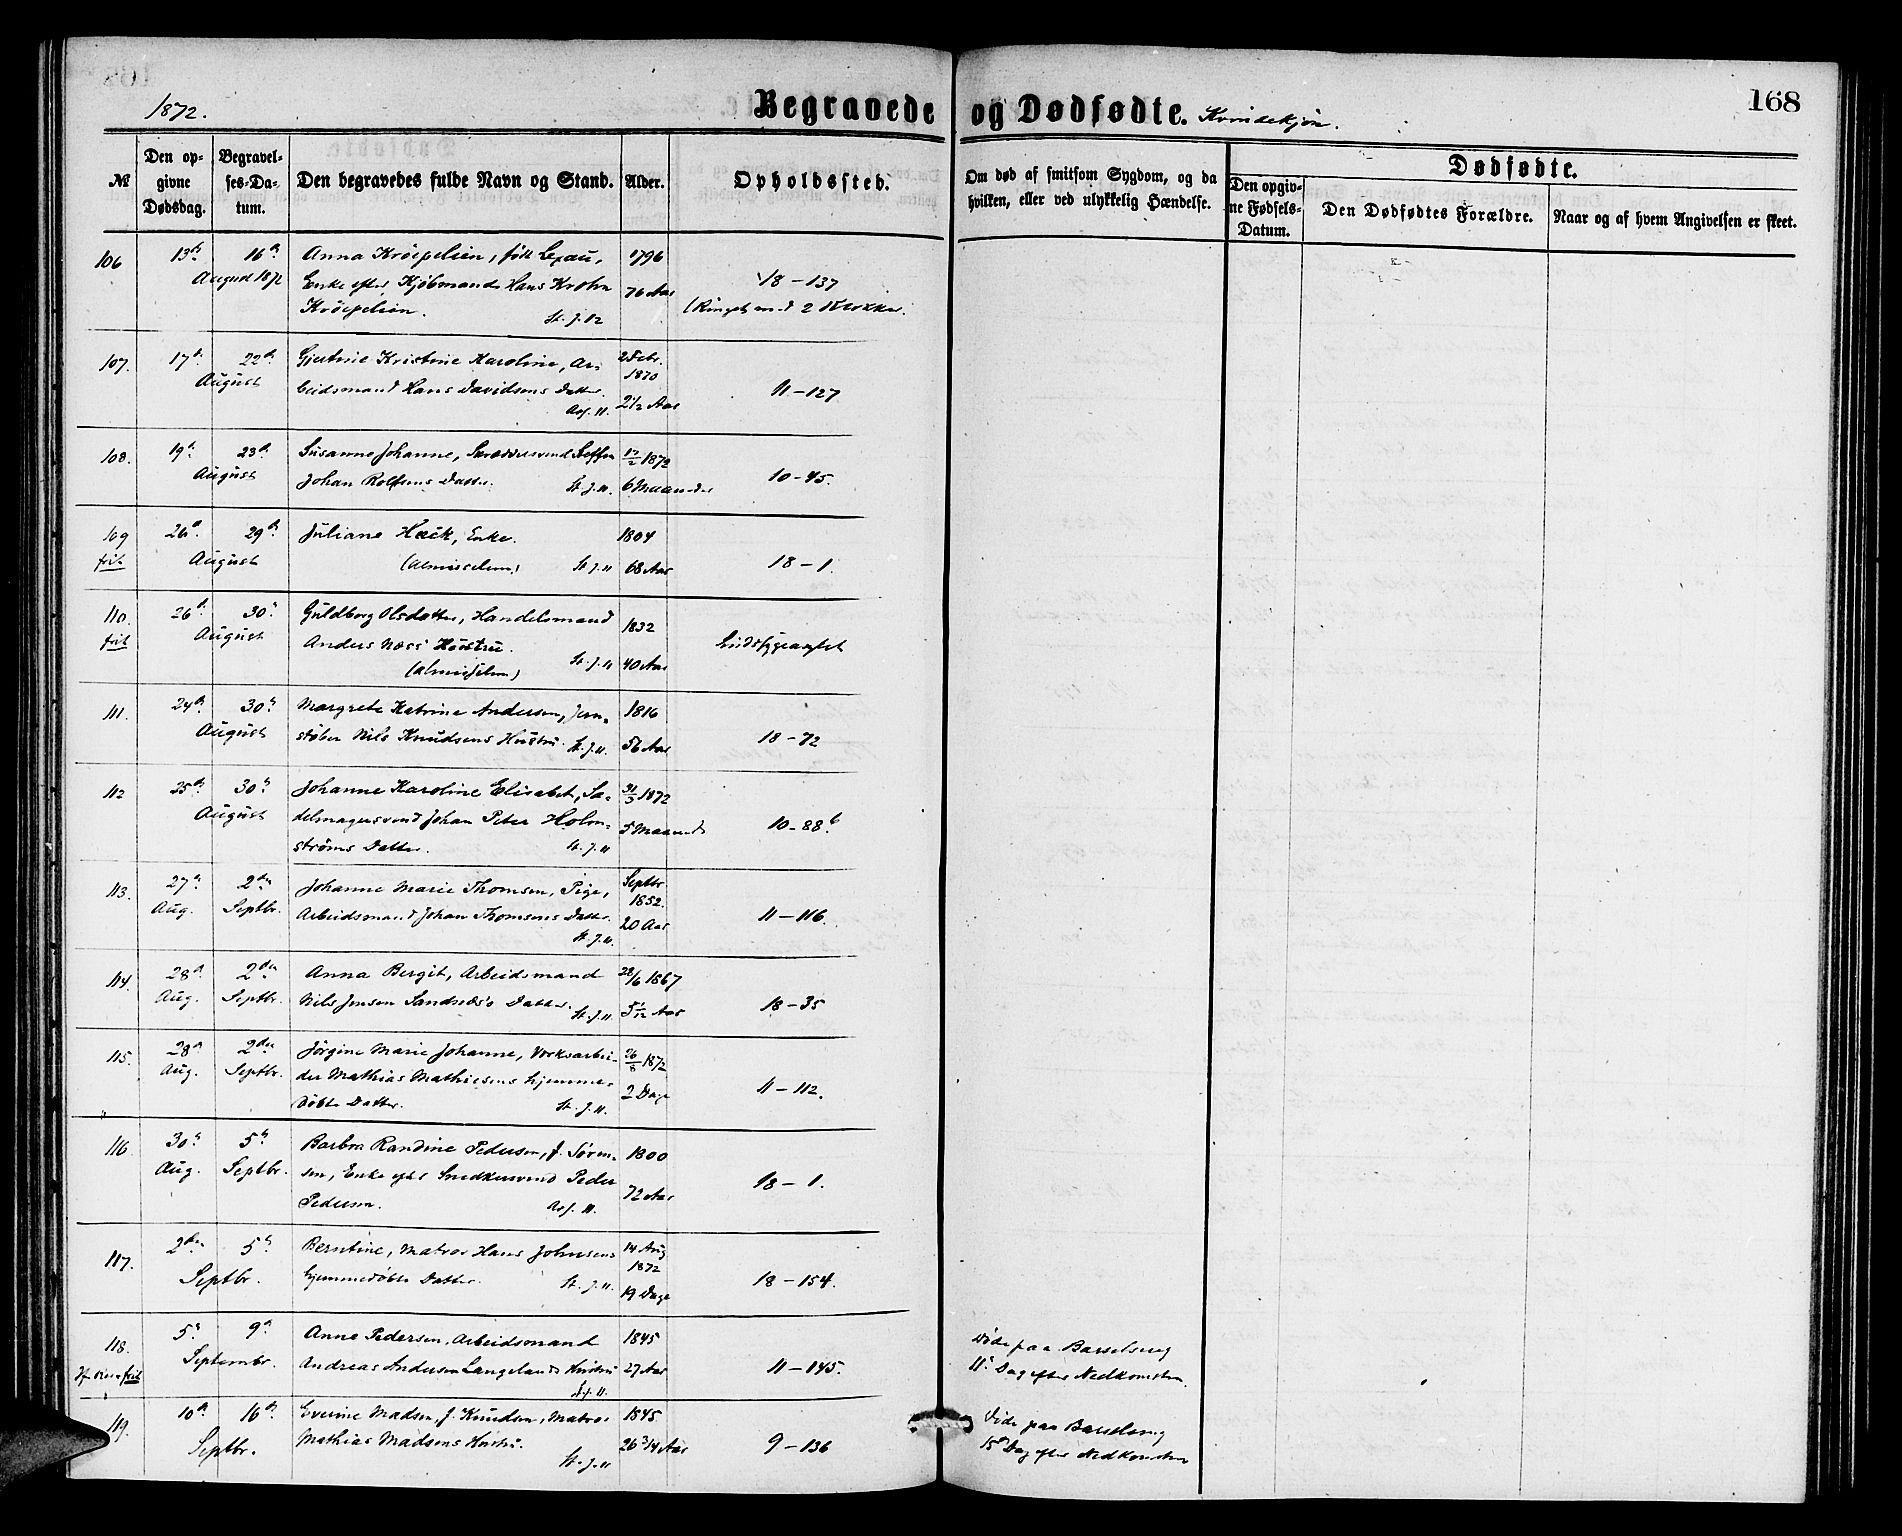 168
1872.
Begravede og Dødfødte. Kvindekjøn.
№
Den opgivne Dødsdag.
Begravelses-Datum.
Den begravedes fulde Navn og Stand.
Alder.
Opholdssted.
Om død af smitsom Sygdom, og da hvilken, eller ved ulykkelig Hændelse.
Dødfødte.
Den opgivne Fødsels-Datum.
Den Dødfødtes Forældre.
Naar og af hvem Angivelsen er skeet.
106 13de 16de Anna Kröepelien, født 1796
August 1872 Enke efter Kjøbmand Hans Krohn 76 Aar 18-137
Kröepelien. St. J. (Ringet med 2 Klokker.
107. 17de 22de Gjertine Kristine Karoline, Ar- 2 Febr. 1870
August beidsmand Hans Davidsens Datter. 2½ Aar 11-127
108. 19de 23de Susanne Johanne, Skræddersvend Steffen 17/2 1872
August Johan Rolfsens Datter. St. J. 6 Maaneder 10-45.
109 26de 29de Juliane Hack, Enke. 1804
frit August (Almisselem) St. J. 68 Aar 18-1.
110. 26de 30te Guldborg Olsdatter, Handelsmand 1832
frit August Anders Næss' Hustru. Sindssygeasylet
(Almisselem) St. J. 40 Aar
111. 24de 30te Margrete Katrine Andersen, Jern- 1816
August støber Nils Knudsens Hustru. St. J. 56 Aar 18-72
112 25de 30te Johanne Karoline Elisabet, Sa- 31/3 1872
August delmagersvend Johan Peter Holm- 5 Maaneder 10-88b
strøms Datter. St. J.
113. 27de 2den Johanne Marie Thomsen, Pige, Septbr 1852.
Aug. Septbr. Arbeidsmand Johan Thomsens Datter. 20 Aar 11-116.
St. J.
114. 28de 2den Anna Bergit, Arbeidsmand 28/6 1867
Aug. Septbr. Nils Jensen Datter. St. J. 5 1/12 Aar 18-35
115. 28de 2den Jørgine Marie Johanne, Værksarbei- 26/8 1872
Aug. Septbr. der Mathias Mathiesens hjemme- 2 Dage 11-112.
døbte Datter. St. J.
116. 30te 5te Barbra Randine Pedersen, f. Sören- 1800
Aug. Septbr. sen, Enke efter Snedkersvend Peder 72 Aar 18-1.
Pedersen.
117. 2den 5te Berntine, Matros Hans Johnsens 14 Aug 1872
Septbr. hjemmedøbte Datter. St. J. 19 Dage 18-154.
118. 5te 9de Anne Pedersen, Arbeidsmand 1845 Døde paa Barselseng
frit Septembr. Andreas Andersen Langelands Hustru 27 Aar 11-145. 11te Dag efter Nedkomsten.
119. 10de 16de Everine Madsen, f. Knudsen, Matros 1845 Døde paa Barselseng
Septbr. Mathias Madsens Hustru. 26 3/4 Aar 9-136 15de Dag efter Nedkomsten
St. J.